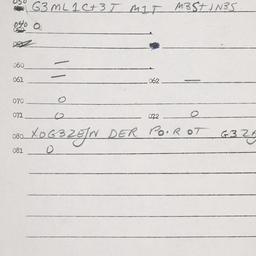 050 G3ML1C+3T M1T M3S+1N3S
040 O
060 —
061 — 062 —
070 O
071 O 072 O
080 XOG3ZEJN DER PO.ROT G3Z
081 O